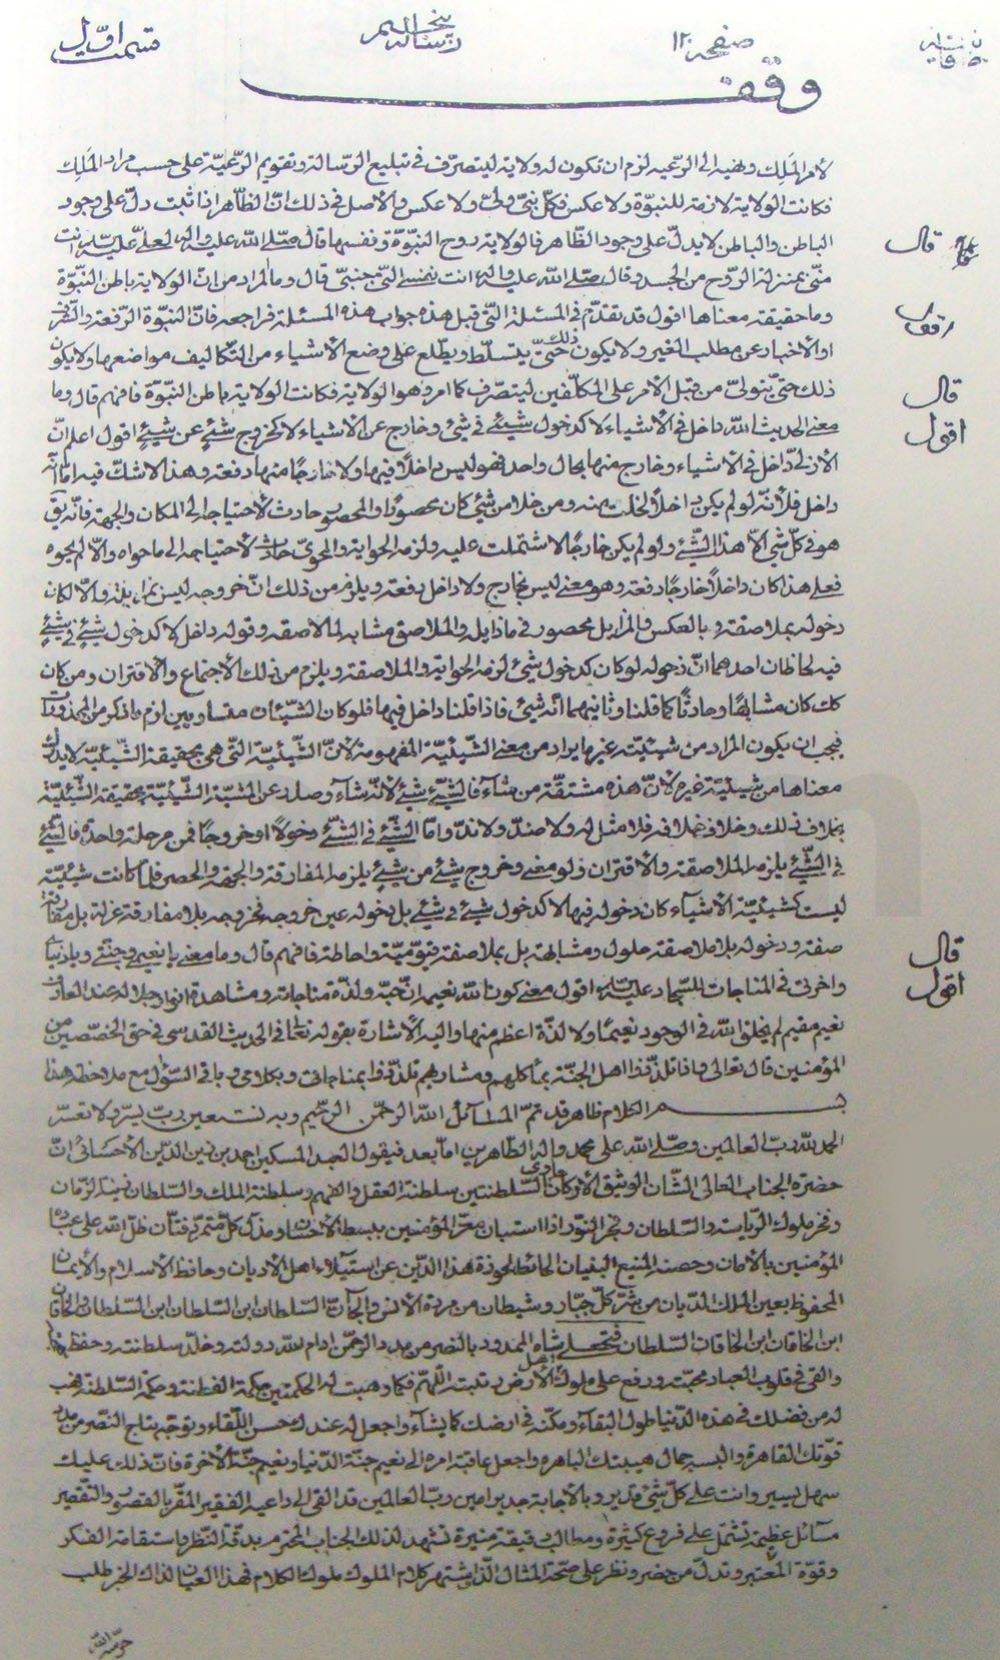 قسمت اوّل
رسالة
صفحه ١٢٠
وقف
لأمر المَلِك ونهيه الى الرّعيه لزم ان تكون له ولاية ليتصرّف فى تبليغ الرّسالة وتقويم الرّعيّة على حسب مراد المَلِك
فكانت الولاية لازمة للنبوّة ولا عكس فكلّ نبىّ ولىّ ولا عكس والأصل فى ذلك انّ الظّاهر اذا ثبت دلّ على وجود
الباطن والباطن لا يدلّ على وجود الظّاهر فالولاية روح النبوّة ونفسها قال صلّى اللّه عليه واله لعلىّ عليه انت
قال
منّى بمنزلة الرّوح من الجسد وقال صلّى اللّه عليه واله انت نفسى الّتى بين جنبىّ قال وما المراد من انّ الولاية باطن النبوّة
وما حقيقة معناها اقول قد تقدّم فى المسئلة الّتى قبل هذه جواب هذه المسئلة فراجعه فانّ النبوّة الرّفعة والشّرف
اقول
او الأخبار عن مطلب الغير ولا يكون ذلك حتىّ يتسلّط ويطّلع على وضع الأشياء من التّكاليف مواضعها ولا يكون
ذلك حتىّ يتولىّ من قبل الأمر على المكلّفين ليتصرّف كما امر وهو الولاية فكانت الولاية باطن النبّوة فافهم قال وما
قال
معنى الحديث اللّه داخل فى الأشياء لا كدخول شيئ فى شئ وخارج عن الأشياء لا كخروج شيئٍ عن شيئٍ اقول اعلم انّ
اقول
الازلى داخل فى الاشياء وخارج منها بحال واحد فهو ليس داخلاً فيها ولا خارجًا منها دفعة وهذا لا شكّ فيه امّا انّه
داخل فلأنّه لو لم يكن داخلاً لخلت منه ومن خلا من شئ كان محصورًا والمحصور حادث لأحتياجه الى المكان والجهة فانّه يق
هو فى كلّ شئ الاّ هذا الشّيئ ولو لم يكن خارجًا لاشتملت عليه ولزمه الحواية والمحوىّ حادث لأحتياجه الى ما حواه والاّ لم يحوه
فعلى هذا كان داخلاً خارجًا دفعة وهو معنى ليس بخارج ولا داخل دفعة ويلزم من ذلك انّ خروجه ليس بمزايلة والاّ لكان
دخوله بملاصقة وبالعكس والمزايل محصور فى ما ذايل والملاصق مشابه لما لاصقه وقوله داخل لا كدخول شيئٍ فى شيئٍ
فيه لحاظان احدهما انّ دخوله لو كان كدخول شئ لزمه الحواية والملاصقة ويلزم من ذلك الأجتماع والأقتران ومن كان
كك كان مشابهًا وحادثًا كما قلنا وثانيهما انّه شئ فاذا قلنا داخل فيها فلو كان الشّيئان متساويين لزم ما ذكر من المحذورات
فيجب ان يكون المراد من شيئيّته غير ما يراد من معنى الشّيئيّة المفهومة لأنّ الشّيئيّة الّتى هى بحقيقة الشّيئيّة لا يدرك
معناها من شيئيّة غيره لأنّ هذه مشتقّة من شآء فالشّيئ شيئ لأنّه شآء وصدر عن المشيّة الشّيئيّة بحقيقة الشّيئيّة
بخلاف ذلك وخلاف خلافه فلا مثل له ولا ضدّ ولا ندّ وامّا الشّيئ فى الشّيئ دخولاً او خروجًا فمن مرحلة واحدة فالشّيئ
فى الشّيئ يلزمه الملاصقة والأقتران ولو معنى وخروج شيئ من شيئٍ يلزمه المفارقة والجهة والحصر فلمّا كانت شيئيّته
ليست كشيئيّة الأشياء كان دخوله فيها لا كدخول شيئ فى شيئ بل دخوله عين خروجه فخروجه بلا مفارقة عزلة بل مفارقة
صفة ودخوله بلا ملاصقة حلول ومشابهة بل بملاصقة قيّوميّة واحاطة فافهم قال وما معنى يا نعيمى وجنّتى ويا دنياى
قال
واخرتى فى المناجات للسّجاد عليه اقول معنى كون اللّه نعيمه انّ محبّته ولذّة مناجاته ومشاهدة انوار جلاله عند العارف
اقول
نعيم مقيم لم يخلق اللّه فى الوجود نعيمًا ولا لذّة اعظم منها واليه الأشارة بقوله تعالى فى الحديث القدسى فى حق المختصّين من
المؤمنين قال تعالى واذا تلذّذوا اهل الجنّة بمأكلهم ومشاربهم تلذّذوا بمناجاتى وبكلامى وباقى السّؤال مع ملاحظة هذا
الكلام ظاهر قد تمّ المسائل بسم اللّه الرّحمن الرّحيم وبه نستعين ربّ يسّر ولا تعسّر
الحمد للّه ربّ العالمين وصلّى اللّه على محمد واله الطّاهرين امّا بعد فيقول العبد المسكين احمد بن زين الدّين الأحسائى انّ
حضرة الجناب العالى الشّان الوثيق الأركان حاوى السّلطنتين سلطنة العقل والفهم وسلطنة الملك والسّلطان زينة الزّمان
وفخر ملوك الرّياسة والسّلطان وفجر النّور اذا استبان معزّ المؤمنين ببسط الأحسان ومذلّ كلّ متمرّد فتّان ظلّ اللّه على عباده
المؤمنين بالأمان وحصنه المنيع البنيان الحائط لحوذة هذا الدّين عن استيلاء اهل الأديان وحافظ الأسلام والأيمان
المحفوظ بعين الملك الدّيان من شرّ كلّ جبّار وشيطان من مردة الأنس والجآنّ السّلطان ابن السّلطان ابن السّلطان والخاقان
ابن الخاقان ابن الخاقان السّلطان فتحعلى شاه الممدود بالنصر من مدد الرّحمن ادام اللّه دولته وخلّد سلطانته وحفظ
والقى فى قلوب العباد محبّته ورفع على ملوك اهل الأرض رتبته اللّهمّ فكما وهبت له الحكمتين حكمة الفطنة وحكمة السّلطنة فهب
له من فضلك فى هذه الدّنيا طول البقآء ومكّنه فى ارضك كما يشآء واجعل له عندك حسن اللّقاء وتوّجه بتاج النّصر من مدد
قوّتك القاهرة والبسه جمال هيبتك الباهره واجعل عاقبة امره الى نعيم جنّة الدّنيا ونعيم جنّة الأخرة فانّ ذلك عليك
سهل يسير وانت على كلّ شئ قدير وبالأجابة جدير امين ربّ العالمين قد القى الى داعيه الفقير المقرّ بالقصور والتقصير
مسآئل عظيمة تشتمل على فروع كثيرة ومطالب دقيقة منيرة تشهد لذلك الجناب المحترم بدقّة النّظر واستقامة الفكر
وقوّة المعتبر وتدلّ من حضر ونظر على صحّة المثال الّذى اشتهر كلام الملوك ملوك الكلام فهذا العيان لذاك الخبر طلب
حرّسه اللّه